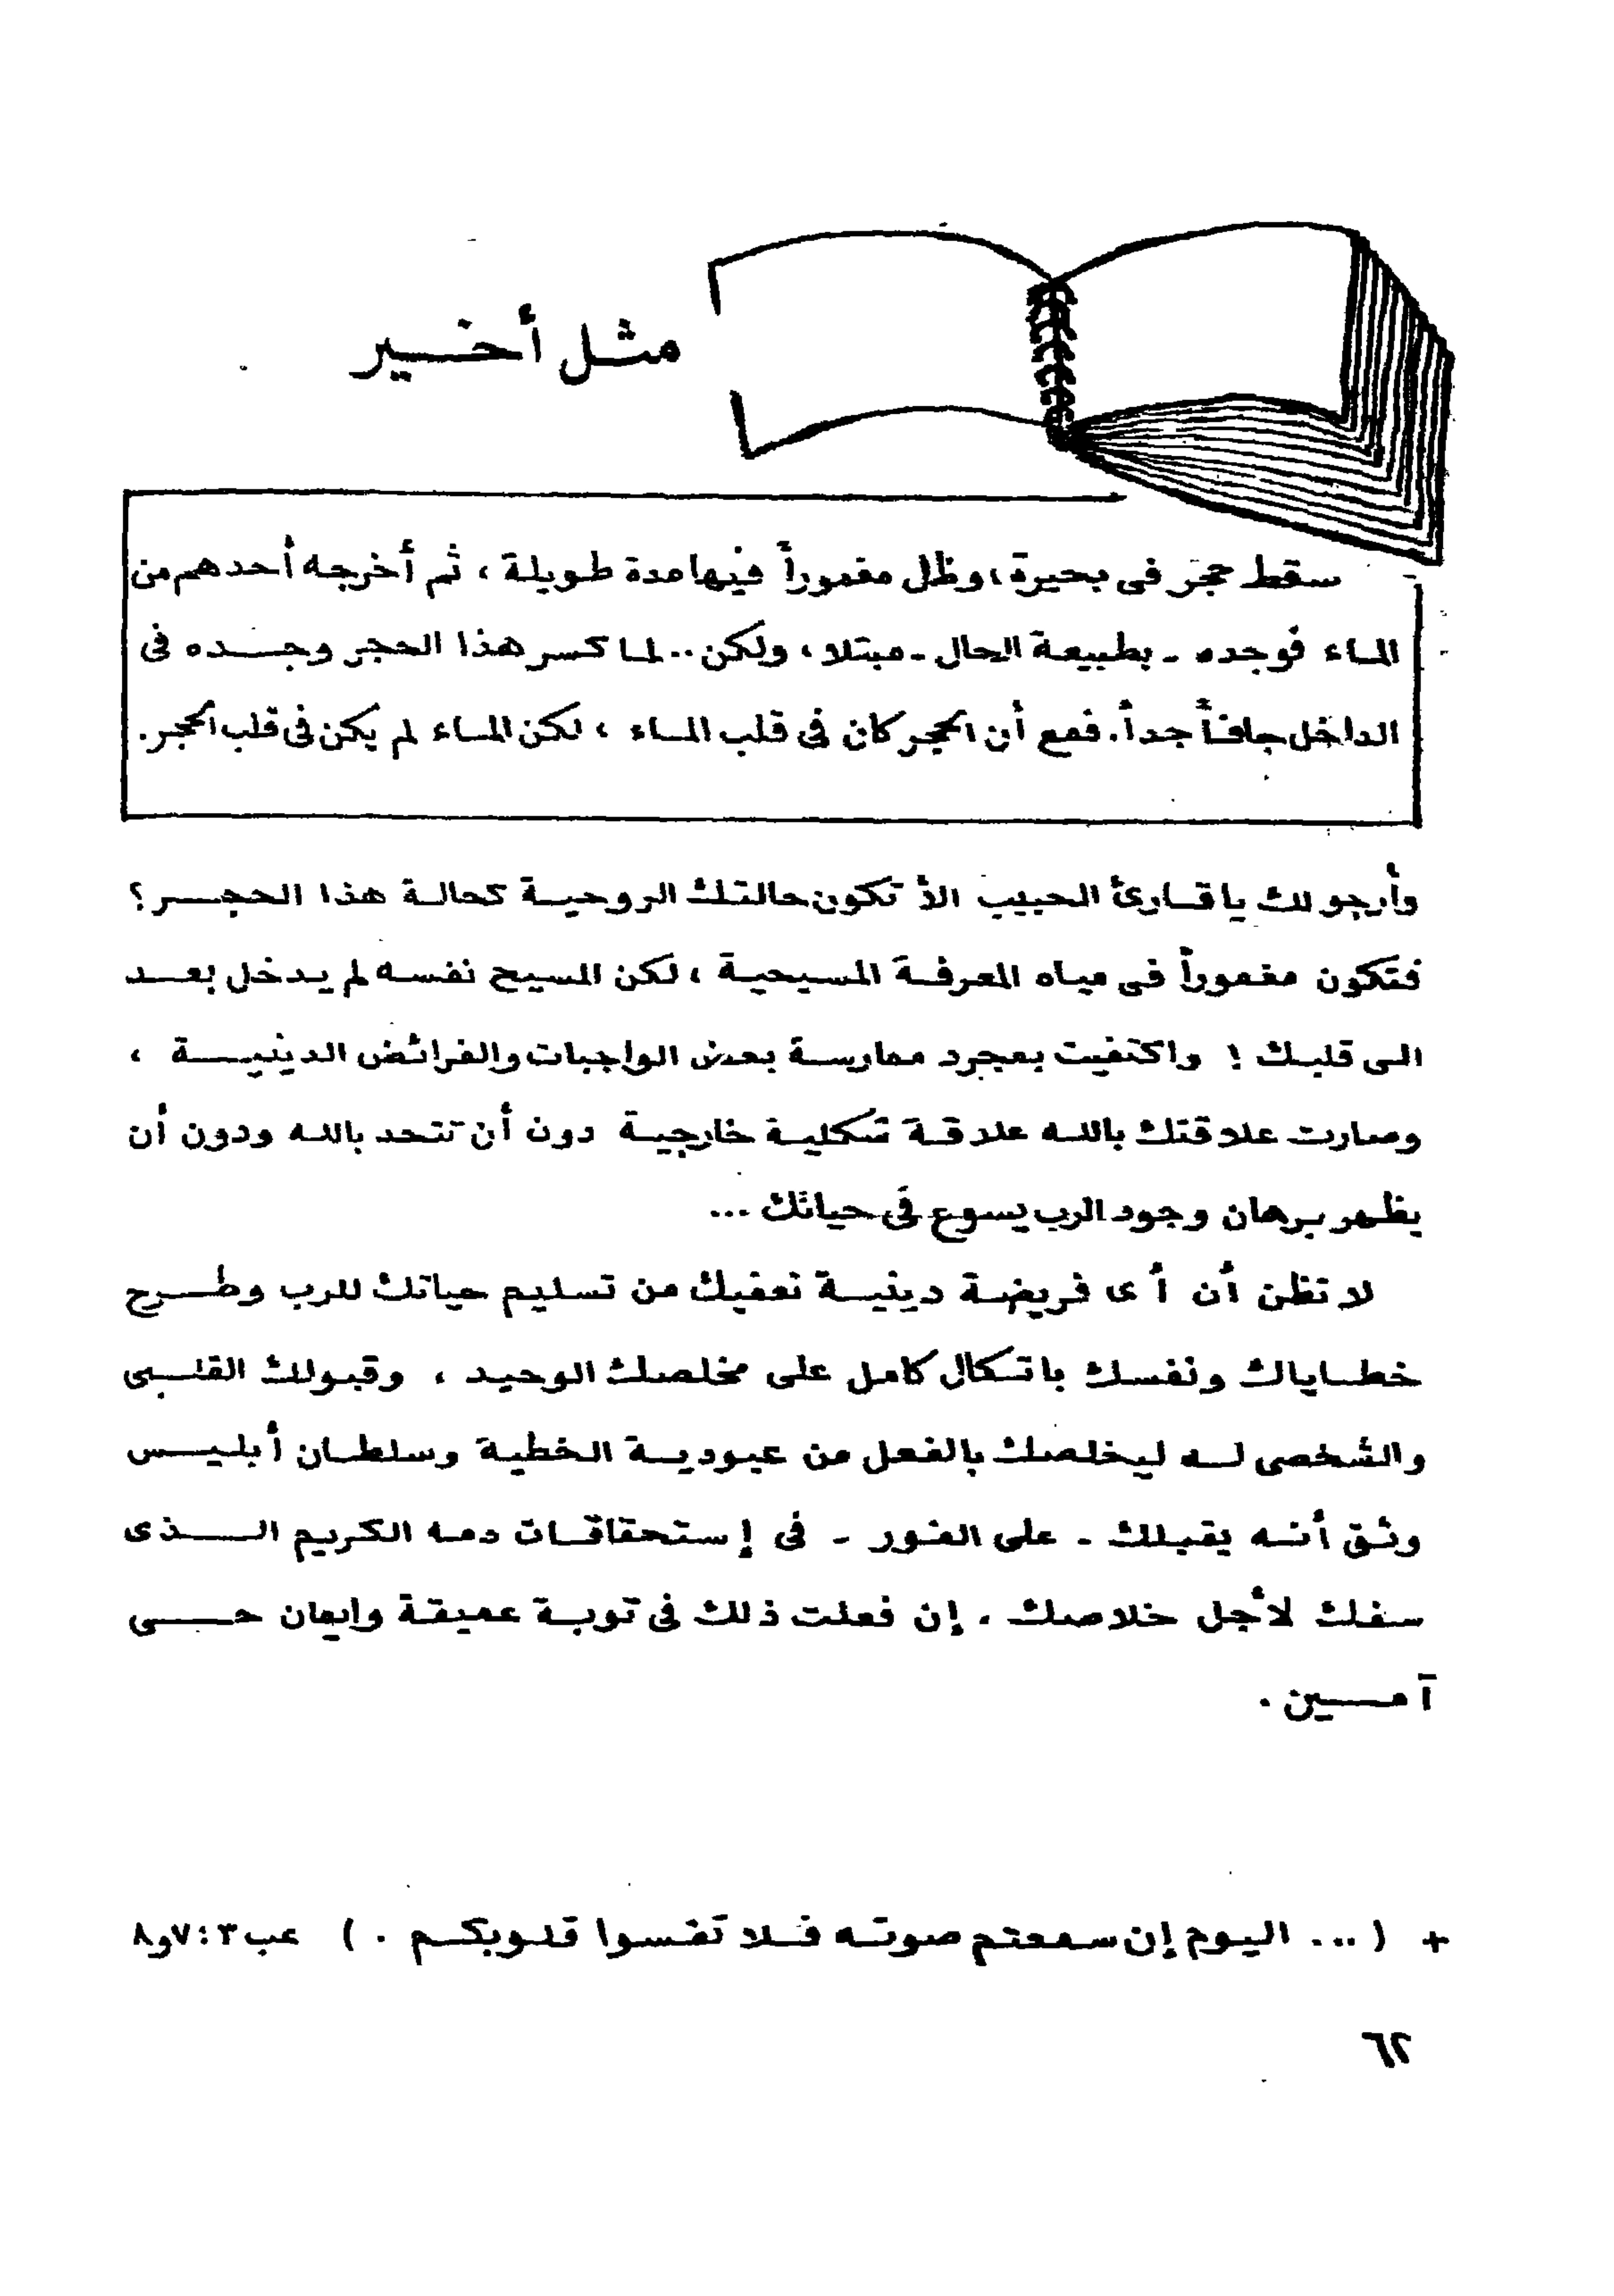 مثل أخير
سقط حجر فى بحيرة، وظل مغموراً فيها مدة طويلة، ثم أخرجه أحدهم من
الماء فوجده - بطبيعة الحال - مبتلا، ولكن.. لما كسر هذا الحجر وجده فى
الداخل جافاً جداً. فمع أن الحجر كان فى قلب الماء، لكن الماء لم يكن فى قلب الحجر.
وأرجو لك يا قارئ الحبيب الاّ تكون حالتك الروحية كحالة هذا الحجر؟
فتكون مغموراً فى مياه المعرفة المسيحية، لكن المسيح نفسه لم يدخل بعد
الى قلبك ! واكتفيت بمجرد ممارسة بعض الواجبات والفرائض الدينية ،
وصارت علاقتك بالله علاقة شكلية خارجية دون أن تتحد بالله ودون أن
يظهر برهان وجود الرب يسوع فى حياتك ...
لا تظن أن أى فريضة دينية تعفيك من تسليم حياتك للرب وطرح
خطاياك ونفسك باتكال كامل على مخلصك الوحيد ، وقبولك القلبى
والشخصى له ليخلصك بالفعل من عبودية الخطية وسلطان أبليس
وثق أنه يقبلك - على الفور - فى إستحقاقات دمه الكريم الذى
سفك لأجل خلاصك . إن فعلت ذلك فى توبة عميقة وايمان حى
آمين .
+ ( ... اليوم إن سمعتم صوته فلا تقسوا قلوبكم . ) عب ٣ : ٧و٨
٦٢